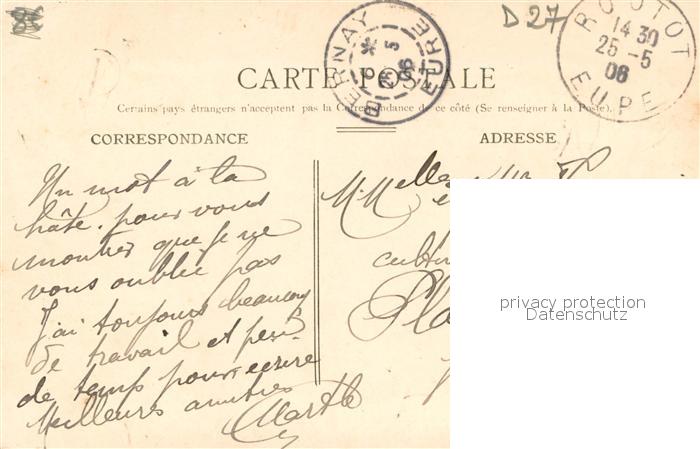 D 27
BERNAY
* 25 5 06
EURE
ROUTOT
14 30
25 - 5
06
EURE
CARTE POSTALE
Certains pays étrangers n'acceptent pas la Correspondance de ce côté (Se renseigner à la Poste).
CORRESPONDANCE
ADRESSE
Un mot à la
hâte. pour vous
montrer que je ne
vous oublie pas
J'ai toujours beaucoup
de travail et peu
de temps pour ecrire
Meilleures amitiés
Marthe
M. Melle
cultiv
Pla
privacy protection
Datenschutz